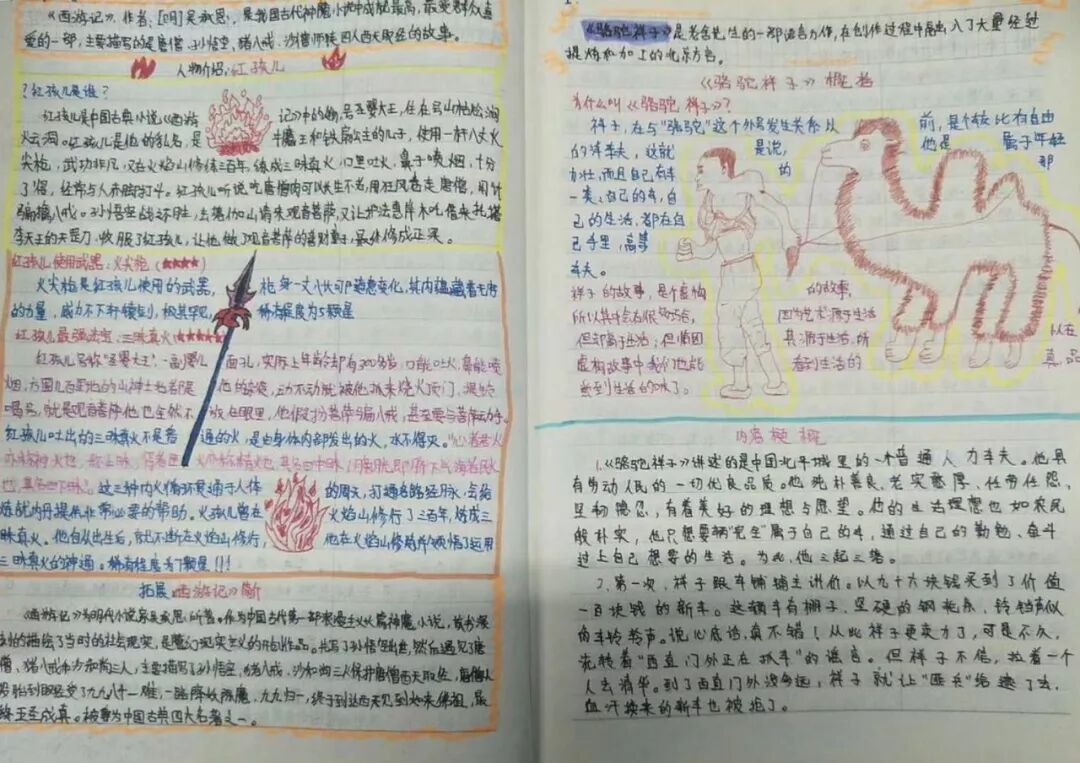 《西游记》,作者:[明]吴承恩,是我国古代神魔小说中成就最高,最受群众喜
爱的一部,主要描写的是唐僧、孙悟空、猪八戒、沙僧师徒四人西天取经的故事。
人物介绍:红孩儿
?红孩儿是谁?
红孩儿是中国古典小说《西游 记》中的人物,号圣婴大王,住在号山枯松涧
火云洞。红孩儿是他的乳名,是 牛魔王和铁扇公主的儿子,使用一杆八丈火
尖枪,武功非凡,又在火焰山修练三百年,练成三昧真火,口里吐火,鼻子喷烟,十分
了得,经常与人赤脚打斗。红孩儿听说吃唐僧肉可以长生不老,用狂风卷走唐僧,用计
骗猪八戒。孙悟空战之不胜,去落伽山请来观音菩萨,又让护法惠岸木吒借来托塔
李天王的天罡刀,收服了红孩儿,让他做了观音菩萨的善财童子,最终修成正果。
红孩儿使用武器:火尖枪(★★★★)
火尖枪是红孩儿使用的武器, 枪身一丈八长可随意变化,其内蕴藏着无穷
的力量,威力不下轩辕剑,极其罕见, 稀有程度为5颗星
红孩儿最强法宝:三昧真火(★★★★★)
红孩儿号称"圣婴大王",一副婴儿 面孔,实际上年龄却有300多岁,口能吐火,鼻能喷
烟,方圆几百里地的山神土地若是 他的奴婢,动不动就被他抓来烧火顶门,提铃
喝号,就是观音菩萨他也全然不 放在眼里,他假扮菩萨骗八戒,甚至要与菩萨动手。
红孩儿吐出的三昧真火不是普 通的火,是由身体内部发出的火,水不得灭。"心者君火
这三种内火循环贯通于人体 的周天,打通各路经脉,会给
炼就内丹提供非常必要的帮助。火孩儿曾在 火焰山修行了三百年,炼成三
昧真火。他自从出生后,就已不断在火焰山修行, 他在火焰山修炼所领悟了运用
三昧真火的神通。稀有程度为7颗星!!!
拓展《西游记》简介
《西游记》为明代小说家吴承恩所著。作为中国古代第一部浪漫主义长篇神魔小说,该书深
刻的描绘了当时的社会现实,是魔幻现实主义的开创作品。先写了孙悟空出世,然后遇见了唐
僧、猪八戒和沙和尚三人,主要描写了孙悟空、猪八戒、沙和尚三人保护唐僧西天取经,唐僧从
投胎到取经受了九九八十一难,一路降妖伏魔,九九归一,终于到达西天见到如来佛祖,最
终五圣成真。被誉为中国古典四大名著之一。
《骆驼祥子》是老舍先生的一部语言力作,在创作过程中融入了大量经过
提炼和加工的北京方言。
《骆驼祥子》概括
为什么叫《骆驼祥子》?
祥子,在与"骆驼"这个外号发生关系以 前,是个较比有自由
的洋车夫,这就 是说, 他是 属于年轻
力壮,而且自己有车 的 那
一类:自己的车,自
己的生活,都在自
己手里,高等
车夫。
祥子的故事,是个虚构 的故事,
所以其中会有很多巧合, 因为艺术源于生活
但却高于生活;但循回 其源于生活,所 以在
虚构故事中我们也能 看到生活的 真,品
尝到生活的味了。
内容梗概
1.《骆驼祥子》讲述的是中国北平城里的一个普通人力车夫。他具
有劳动人民的一切优良品质。他纯朴善良、老实憨厚、任劳任怨、
坚韧隐忍,有着美好的理想与愿望。他的生活理想也如农民
般朴实,他只想要辆"完全"属于自己的车,通过自己的勤勉、奋斗
过上自己想要的生活。为此,他三起三落。
2.第一次,祥子跟车铺铺主讲价。以九十六块钱买到了价值
一百块钱的新车。这辆车有棚子、坚硬的钢轮条,铃铛声似
向车铃铃声。说心底话,真不错!从此祥子更卖力了,可是不久,
流转着"西直门外正在抓车"的谣言。但祥子不信,拉着一个
人去清华。到了西直门外没多远,祥子就让"匪兵"给逮了去,
血汗换来的新车也被抢了。